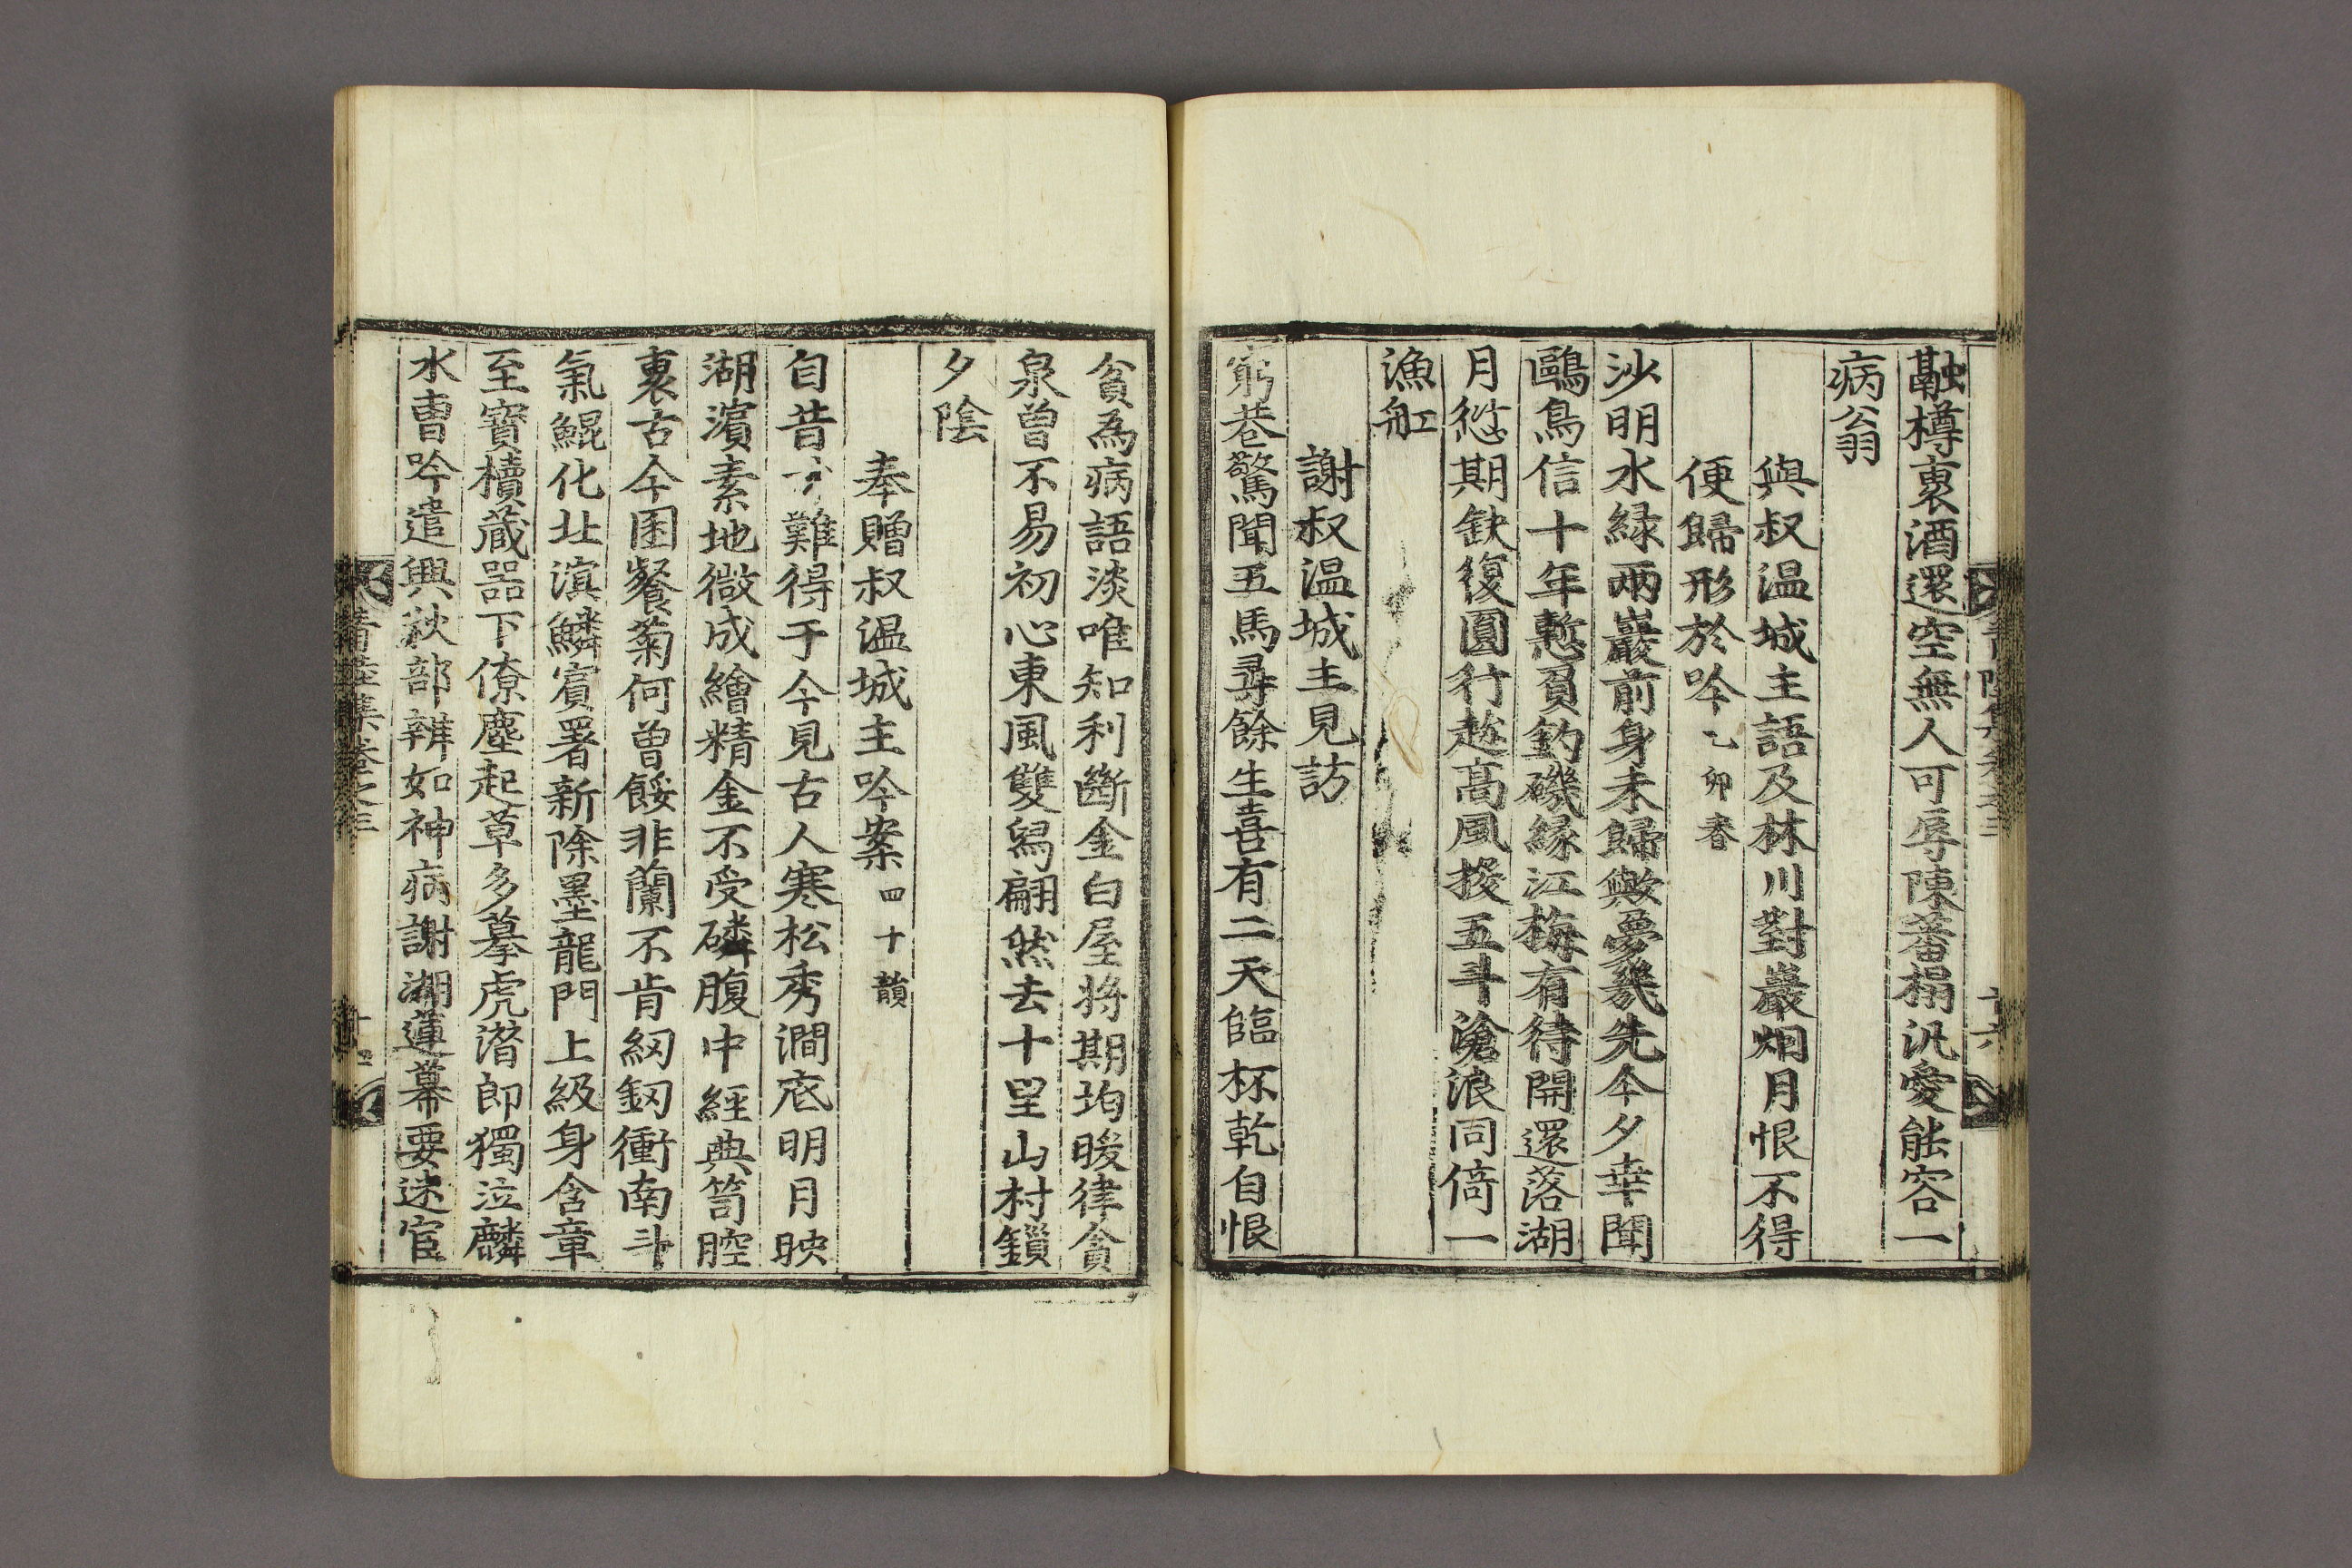 融樽裏酒還空無人可辱陳蕃榻汎愛能容一
病翁
與叔温城主語及林川對巖烟月恨不得
便歸形於吟乙卯春
沙明水緑兩巖前身未歸歟夢幾先今夕幸聞
鷗鳥信十年慙負釣磯縁江梅有待開還落湖
月愆期缺復圓行趂高風撥五斗滄浪同倚一
漁舡
謝叔温城主見訪
窮巷驚聞五馬尋餘生喜有二天臨杯乾自恨
貧為病語淡唯知利斷金白屋將期均暖律貪
泉曾不易初心東風雙舄翩然去十里山村鎖
夕陰
奉贈叔温城主吟案四十韻
自昔難得于今見古人寒松秀澗底明月映
湖濱素地微成繪精金不受磷腹中經典笥腔
裏古今囷餐菊何曾餒非蘭不肯紉釰衝南斗
氣鯤化北溟鱗賓署新除墨龍門上級身含章
至寶櫝蔵器下僚塵起草多摹虎潜郎獨泣麟
水曹吟遣興秋部辨如神病謝湖蓮幕要迷宦
青陸集卷之三